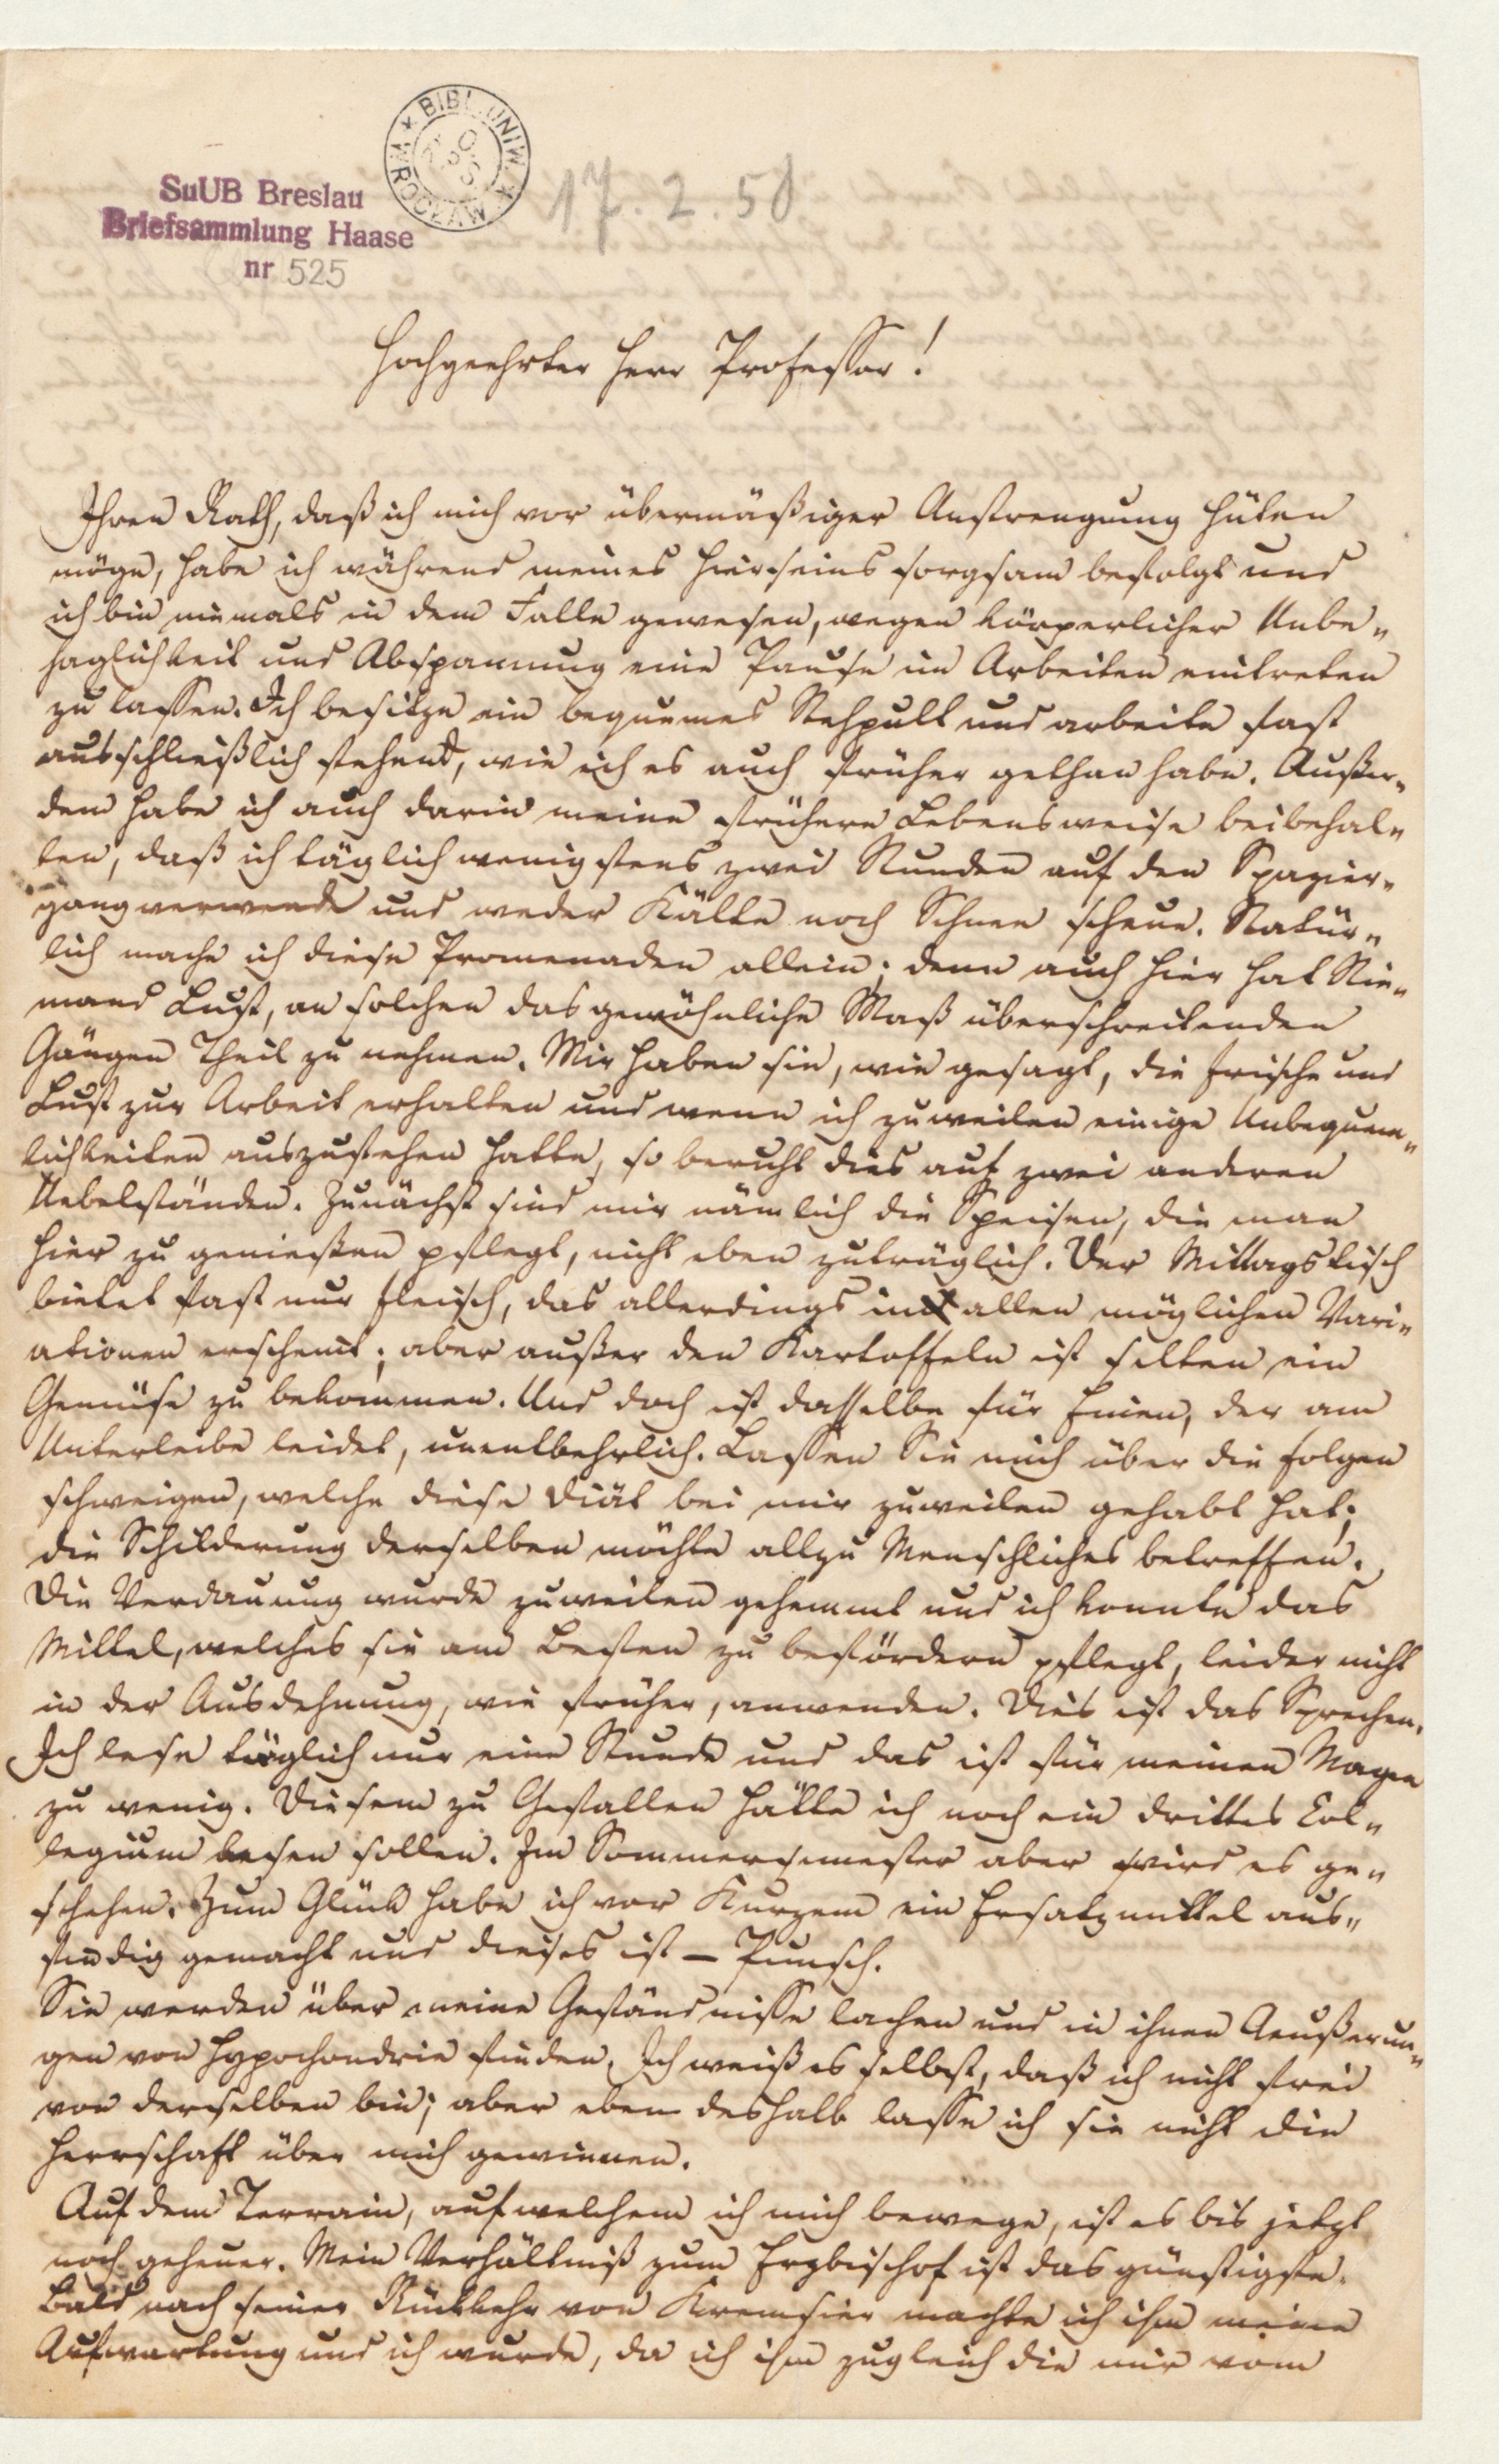 BIBL. UNIW. WROCŁAW
SuUB Breslau
Briefsammlung Haase
nr 525
17.2.50
Hochgeehrter Herr Professor!
Ihren Rath, daß ich mich vor übermäßiger Anstrengung hüten
möge, habe ich während meines Hierseins sorgsam befolgt und
ich bin niemals in dem Falle gewesen, wegen körperlicher Unbe-
haglichkeit und Abspannung eine Pause im Arbeiten eintreten
zu lassen. Ich besitze ein bequemes Stehpult und arbeite fast
ausschließlich stehend, wie ich es auch früher gethan habe. Außer-
dem habe ich auch darin meine frühere Lebensweise beibehal-
ten, daß ich täglich wenigstens zwei Stunden auf den Spazier-
gang verwende und weder Kälte noch Schnee scheue. Natür-
lich mache ich diese Promenaden allein; denn auch hier hat Nie-
mand Lust, an solchen das gewöhnliche Maß überschreitenden
Gängen Theil zu nehmen. Mir haben sie, wie gesagt, die Frische und
Lust zur Arbeit erhalten und wenn ich zuweilen einige Unbequem-
lichkeiten auszustehen hatte, so beruht dies auf zwei anderen
Uebelständen. Zunächst sind mir nämlich die Speisen, die man
hier zu genießen pflegt, nicht eben zuträglich. Der Mittagstisch
bietet fast nur Fleisch, das allerdings in allen möglichen Vari-
ationen erscheint; aber außer den Kartoffeln ist selten ein
Gemüse zu bekommen. Und doch ist dasselbe für Einen, der am
Unterleibe leidet, unentbehrlich. Lassen Sie mich über die Folgen
schweigen, welche diese Diät bei mir zuweilen gehabt hat;
die Schilderung derselben möchte allzu Menschliches betreffen.
Die Verdauung wurde zuweilen gehemmt und ich konnte das
Mittel, welches sie am Besten zu befördern pflegt, leider nicht
in der Ausdehnung, wie früher, anwenden. Dies ist das Sprechen.
Ich lese täglich nur eine Stunde und das ist für meinen Magen
zu wenig. Diesem zu Gefallen hätte ich noch ein drittes Col-
legium lesen sollen. Im Sommersemester aber wird es ge-
schehen. Zum Glück habe ich vor Kurzem ein Ersatzmittel aus-
findig gemacht und dieses ist – Punsch.
Sie werden über meine Geständnisse lachen und in ihnen Aeußerun-
gen von Hypochondrie finden. Ich weiß es selbst, daß ich nicht frei
von derselben bin; aber eben deshalb lasse ich sie nicht die
Herrschaft über mich gewinnen.
Auf dem Terrain, auf welchem ich mich bewege, ist es bis jetzt
noch geheuer. Mein Verhältniß zum Erzbischof ist das günstigste.
Bald nach seiner Rückkehr von Kremsier machte ich ihm meine
Aufwartung und ich wurde, da ich ihm zugleich die mir vom